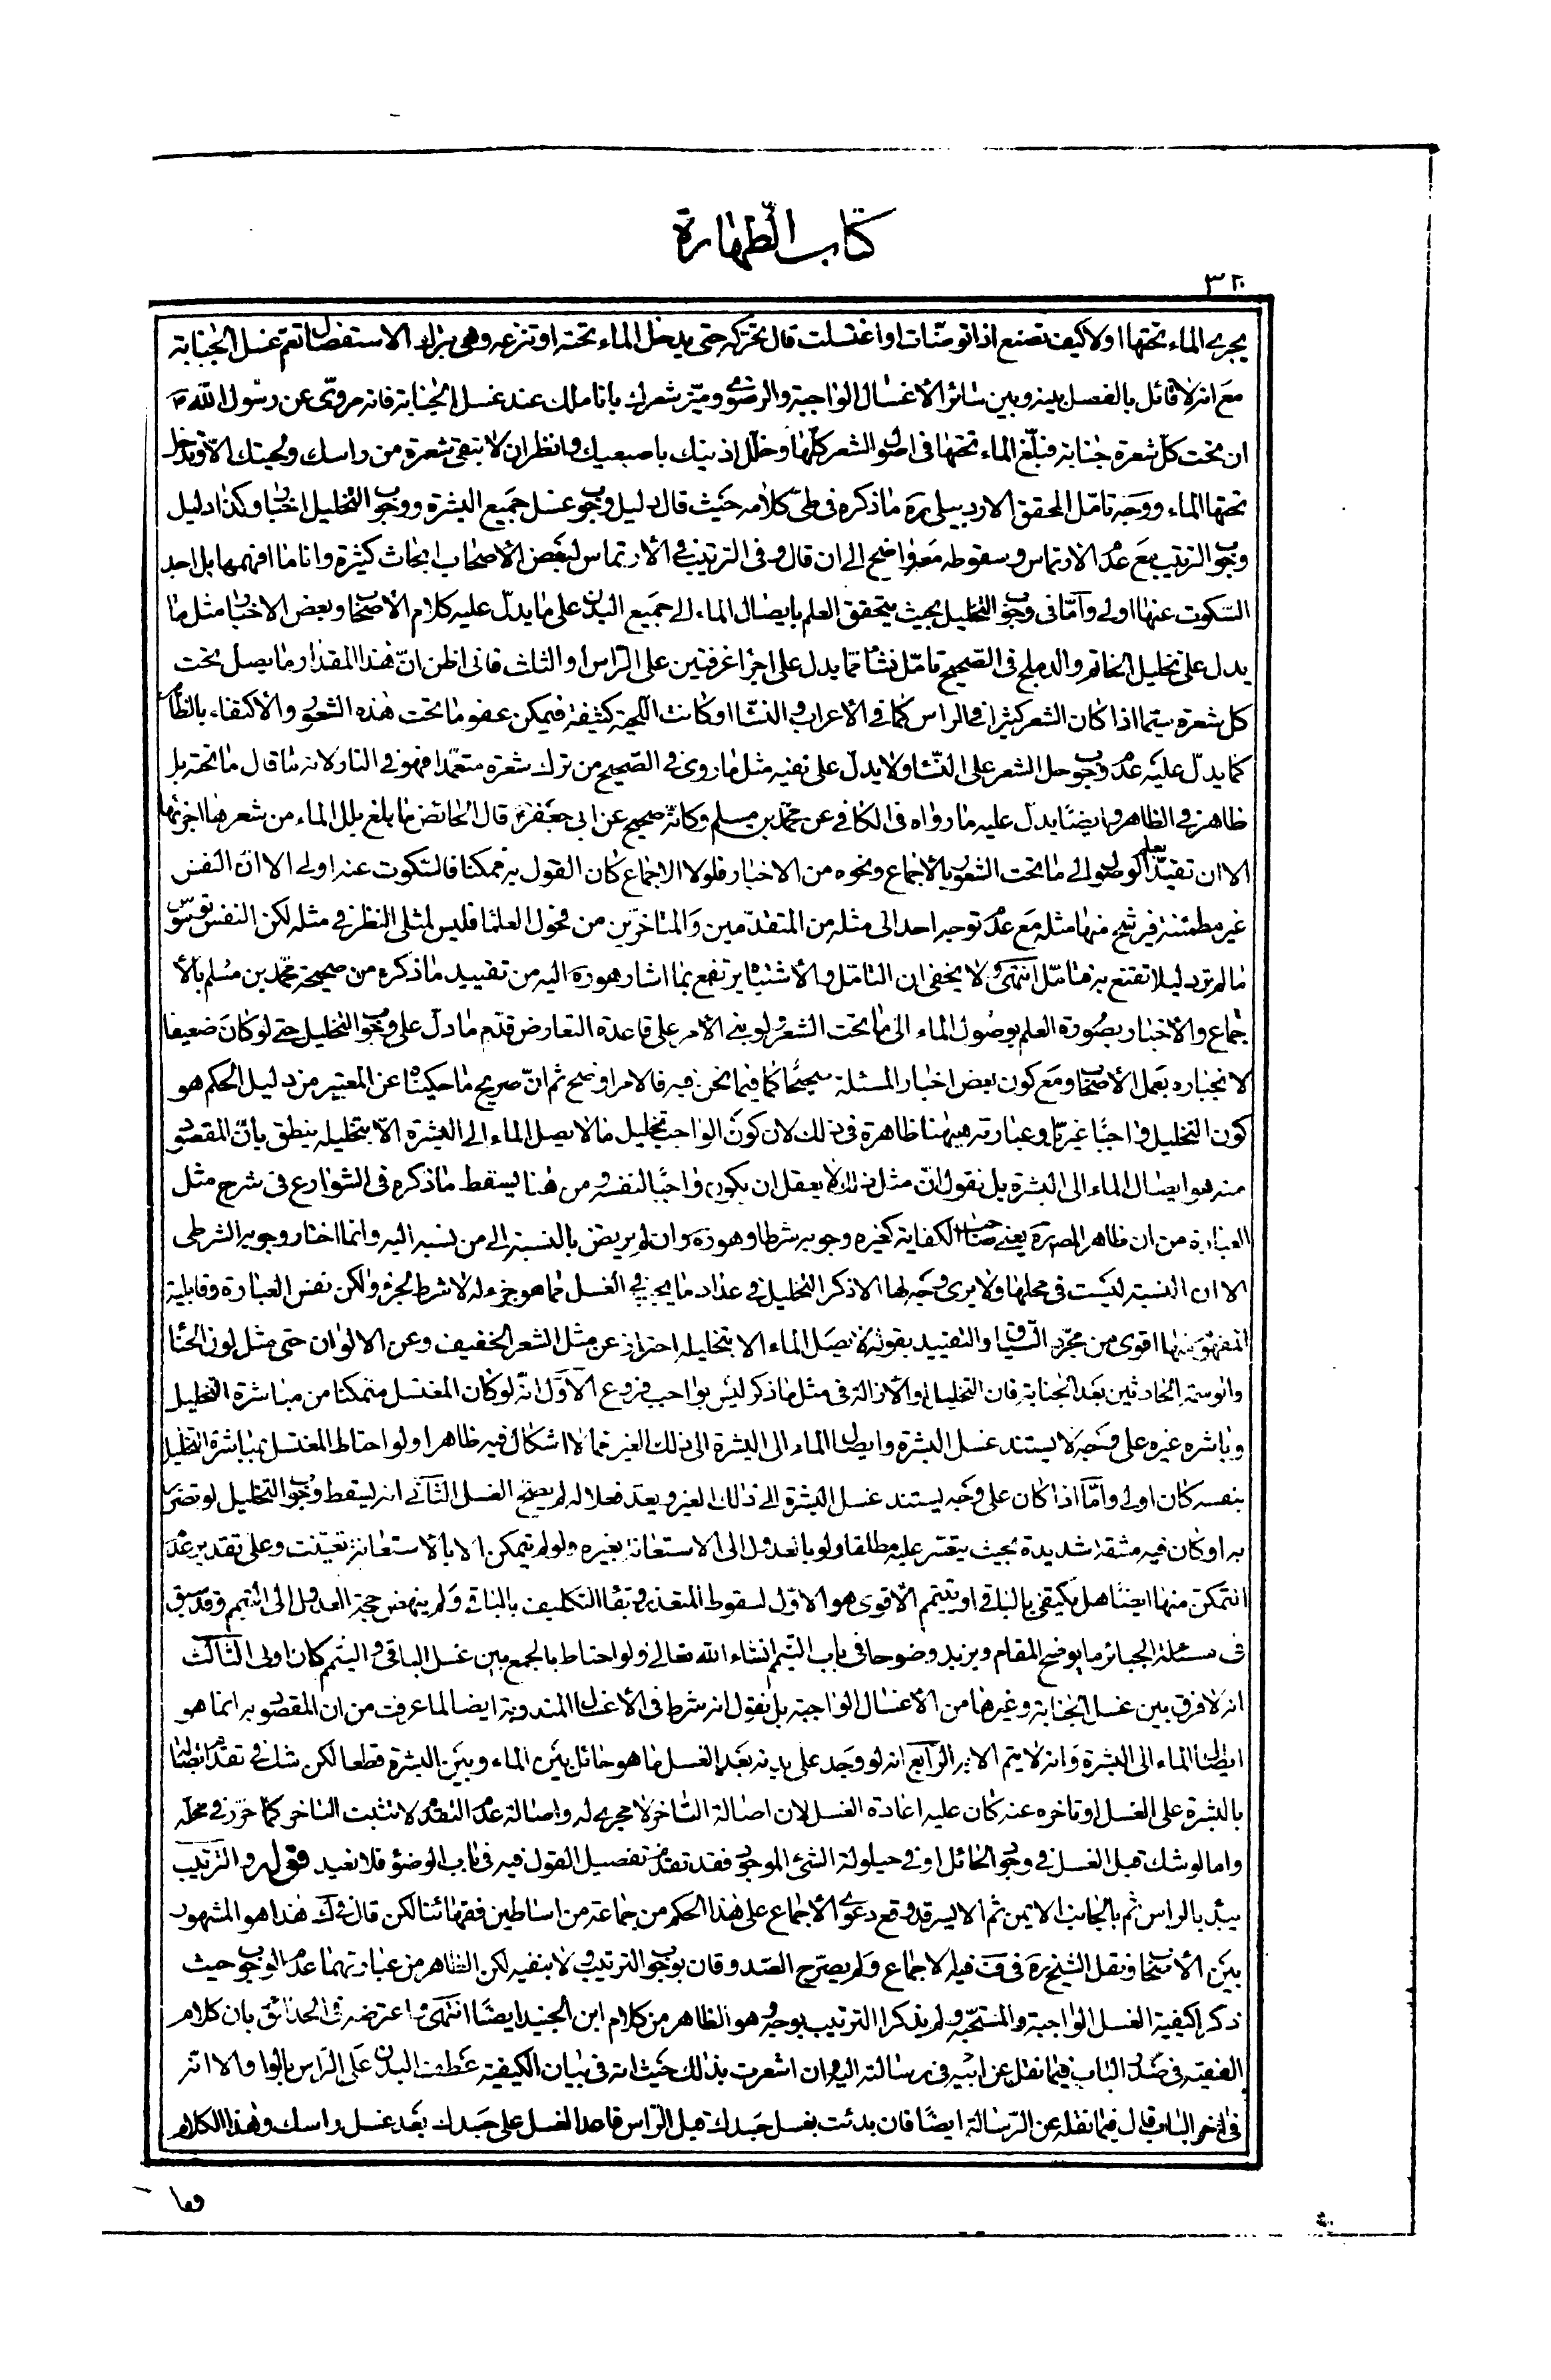 كتاب الطهارة
٣٢٠
يجري الماء تحتها او لا كيف تصنع اذا توضات او اغتسلت قال تحركه حتى يدخل الماء تحته او تنزعه وهي بترك الاستفصال تعم غسل الجنابة
مع انه لا قائل بالفصل بينه وبين سائر الاغسال الواجبة والرضوي وميّز شعرك باناملك عند غسل الجنابة فانه مروي عن رسول الله ص
ان تحت كل شعرة جنابة فبلّغ الماء تحتها في اصول الشعر كلها وخلّل اذنيك باصبعيك وانظر ان لا تبقى شعرة من راسك ولحيتك الا وتدخل
تحتها الماء ووجه تامّل المحقق الاردبيلي ره ما ذكره في طي كلامه حيث قال دليل وجوب غسل جميع البشرة ووجوب التخليل اخبار وكذا دليل
وجوب الترتيب مع عدم الارتماس وسقوطه معه واضح الى ان قال وفي الترتيب في الارتماس لبعض الاصحاب ابحاث كثيرة وانا ما افهمها بل اجد
السكوت عنها اولى وامّا في وجوب التخليل بحيث يتحقق العلم بايصال الماء الى جميع البدن على ما يدل عليه كلام الاصحاب وبعض الاخبار مثل ما
يدل على تخليل الخاتم والدملج في الصحيح تامّل نشا مما يدل على اجزاء غرفتين على الراس او الثلث فاني اظن انّ هذا المقدار ما يصل تحت
كل شعرة سيّما اذا كان الشعر كثيرا في الراس كما في الاعراب والنساء او كانت اللحية كثيفة فيمكن عفو ما تحت هذه الشعور والاكتفاء بالظاهر
كما يدلّ عليه عدم وجوب حل الشعر على النساء ولا يدل على نفيه مثل ما روي في الصحيح من ترك شعرة متعمدا فهو في النار لانه ما قال ما تحته بل
ظاهره في الظاهر وايضا يدل عليه ما رواه في الكافي عن محمد بن مسلم وكانه صحيح عن ابي جعفر ع قال الحائض ما بلغ بلل الماء من شعرها اجزئها
الا ان تقيد بعلم الوصول الى ما تحت الشعور بالاجماع ونحوه من الاخبار فلولا الاجماع كان القول به ممكنا فالسكوت عنه اولى الا ان النفس
غير مطمئنة فيرشح منها مثله مع عدم توجه احد الى مثله من المتقدّمين والمتاخرين من فحول العلماء فليس لمثلي النظر في مثله لكن النفس توسوس
ما لم تر دليلا تقتنع به فتامل انتهى ولا يخفى ان التامل والاشتباه يرتفع بما اشار هو ره اليه من تقييد ما ذكره من صحيحة محمد بن مسلم بالا
جماع والاخبار بصورة العلم بوصول الماء الى ما تحت الشعر ولو بني الامر على قاعدة التعارض قدّم ما دل على وجوب التخليل حتى لو كان ضعيفا
لانجباره بعمل الاصحاب ومع كون بعض اخبار المسئلة صحيحا كما فيما نحن فيه فالامر اوضح ثم انّ صريح ما حكيناه عن المعتبر من دليل الحكم هو
كون التخليل واجبا غيريّا وعبارته هيهنا ظاهرة في ذلك لان كون الواجب تخليل ما لا يصل الماء الى البشرة الا بتخليله ينطق بانّ المقصود
منه هو ايصال الماء الى البشرة بل نقول انّ مثل ذلك لا يعقل ان يكون واجبا لنفسه ومن هنا يسقط ما ذكره في الشوارع في شرح مثل
العبارة من ان ظاهر المصره يعني صاحب الكفاية كغيره وجوبه شرطا وهو ره وان لم يرتض بالنسبة الى من نسبه اليه وانما اختار وجوبه الشرطي
الا ان النسبة ليست في محلها ولا يرى وجه لها الا ذكر التخليل في عداد ما يجب في الغسل مما هو جزء له لا شرط لجزء ولكن نفس العبارة وقابلية
المفهوم منها اقوى من مجرّد السياق والتقييد بقوله لا يصل الماء الا بتخليله احتراز عن مثل الشعر الخفيف وعن الالوان حتى مثل لون الحنّا
والوسمة الحادثين بعد الجنابة فان التخليل او الازالة في مثل ما ذكر ليس بواجب فروع الاوّل انّه لو كان المغتسل متمكنا من مباشرة التخليل
وباشره غيره على وجه لا يستند غسل البشرة وايصال الماء الى البشرة الى ذلك الغير فمما لا اشكال فيه ظاهرا ولو احتاط المغتسل بمباشرة التخليل
بنفسه كان اولى وامّا اذا كان على وجه يستند غسل البشرة الى ذلك الغير ويعد فعلا له لم يصح الغسل الثاني انه يسقط وجوب التخليل لو تضرر
به او كان فيه مشقة شديدة بحيث يتعسّر عليه مطلقا ولو بالعدول الى الاستعانة بغيره ولو لم يتمكن الا بالاستعانة تعيّنت وعلى تقدير عدم
التمكن منها ايضا هل يكتفي بالباقي او يتيمم الاقوى هو الاوّل لسقوط المتعذر وبقاء التكليف بالباقي ولم ينهض حجة العدول الى التيمم وقد سبق
في مسئلة الجبائر ما يوضح المقام ويزيد وضوحا في باب التيمم انشاء الله تعالى ولو احتاط بالجمع بين غسل الباقي والتيمم كان اولى الثالث
انه لا فرق بين غسل الجنابة وغيرها من الاغسال الواجبة بل نقول انه شرط في الاغسال المندوبة ايضا لما عرفت من ان المقصود به انما هو
ايصال الماء الى البشرة وانه لا يتم الا به الرابع انه لو وجد على بدنه بعد الغسل ما هو حائل بين الماء وبين البشرة قطعا لكن شك في تقدم اتصاله
بالبشرة على الغسل او تاخره عنه كان عليه اعادة الغسل لان اصالة التاخر لا مجرى له واصالة عدم التقدم لا تثبت التاخر كما حرّر في محلّه
واما لو شك قبل الغسل في وجود الحائل او في حيلولة الشئ الموجود فقد تقدم تفصيل القول فيه في باب الوضوء فلا نعيد قوله والترتيب
يبدء بالراس ثم بالجانب الايمن ثم الايسر قد وقع دعوى الاجماع على هذا الحكم من جماعة من اساطين فقهائنا لكن قال في ك هذا هو المشهور
بين الاصحاب ونقل الشيخ ره في ف فيه الاجماع ولم يصرّح الصدوقان بوجوب الترتيب ولا بنفيه لكن الظاهر من عبارتهما عدم الوجوب حيث
ذكرا كيفية الغسل الواجبة والمستحبة ولم يذكرا الترتيب بوجه وهو الظاهر من كلام ابن الجنيد ايضا انتهى واعترضه في الحدائق بان كلام
الفقيه في صدر الباب فيما نقل عن ابيه في رسالته اليه وان اشعرت بذلك حيث انه في بيان الكيفية عطف البدن على الراس بالواو الا انه
في اخر الباب قال فيما نقله عن الرسالة ايضا فان بدئت بغسل جسدك قبل الراس فاعد الغسل على جسدك بعد غسل راسك وهذا الكلام